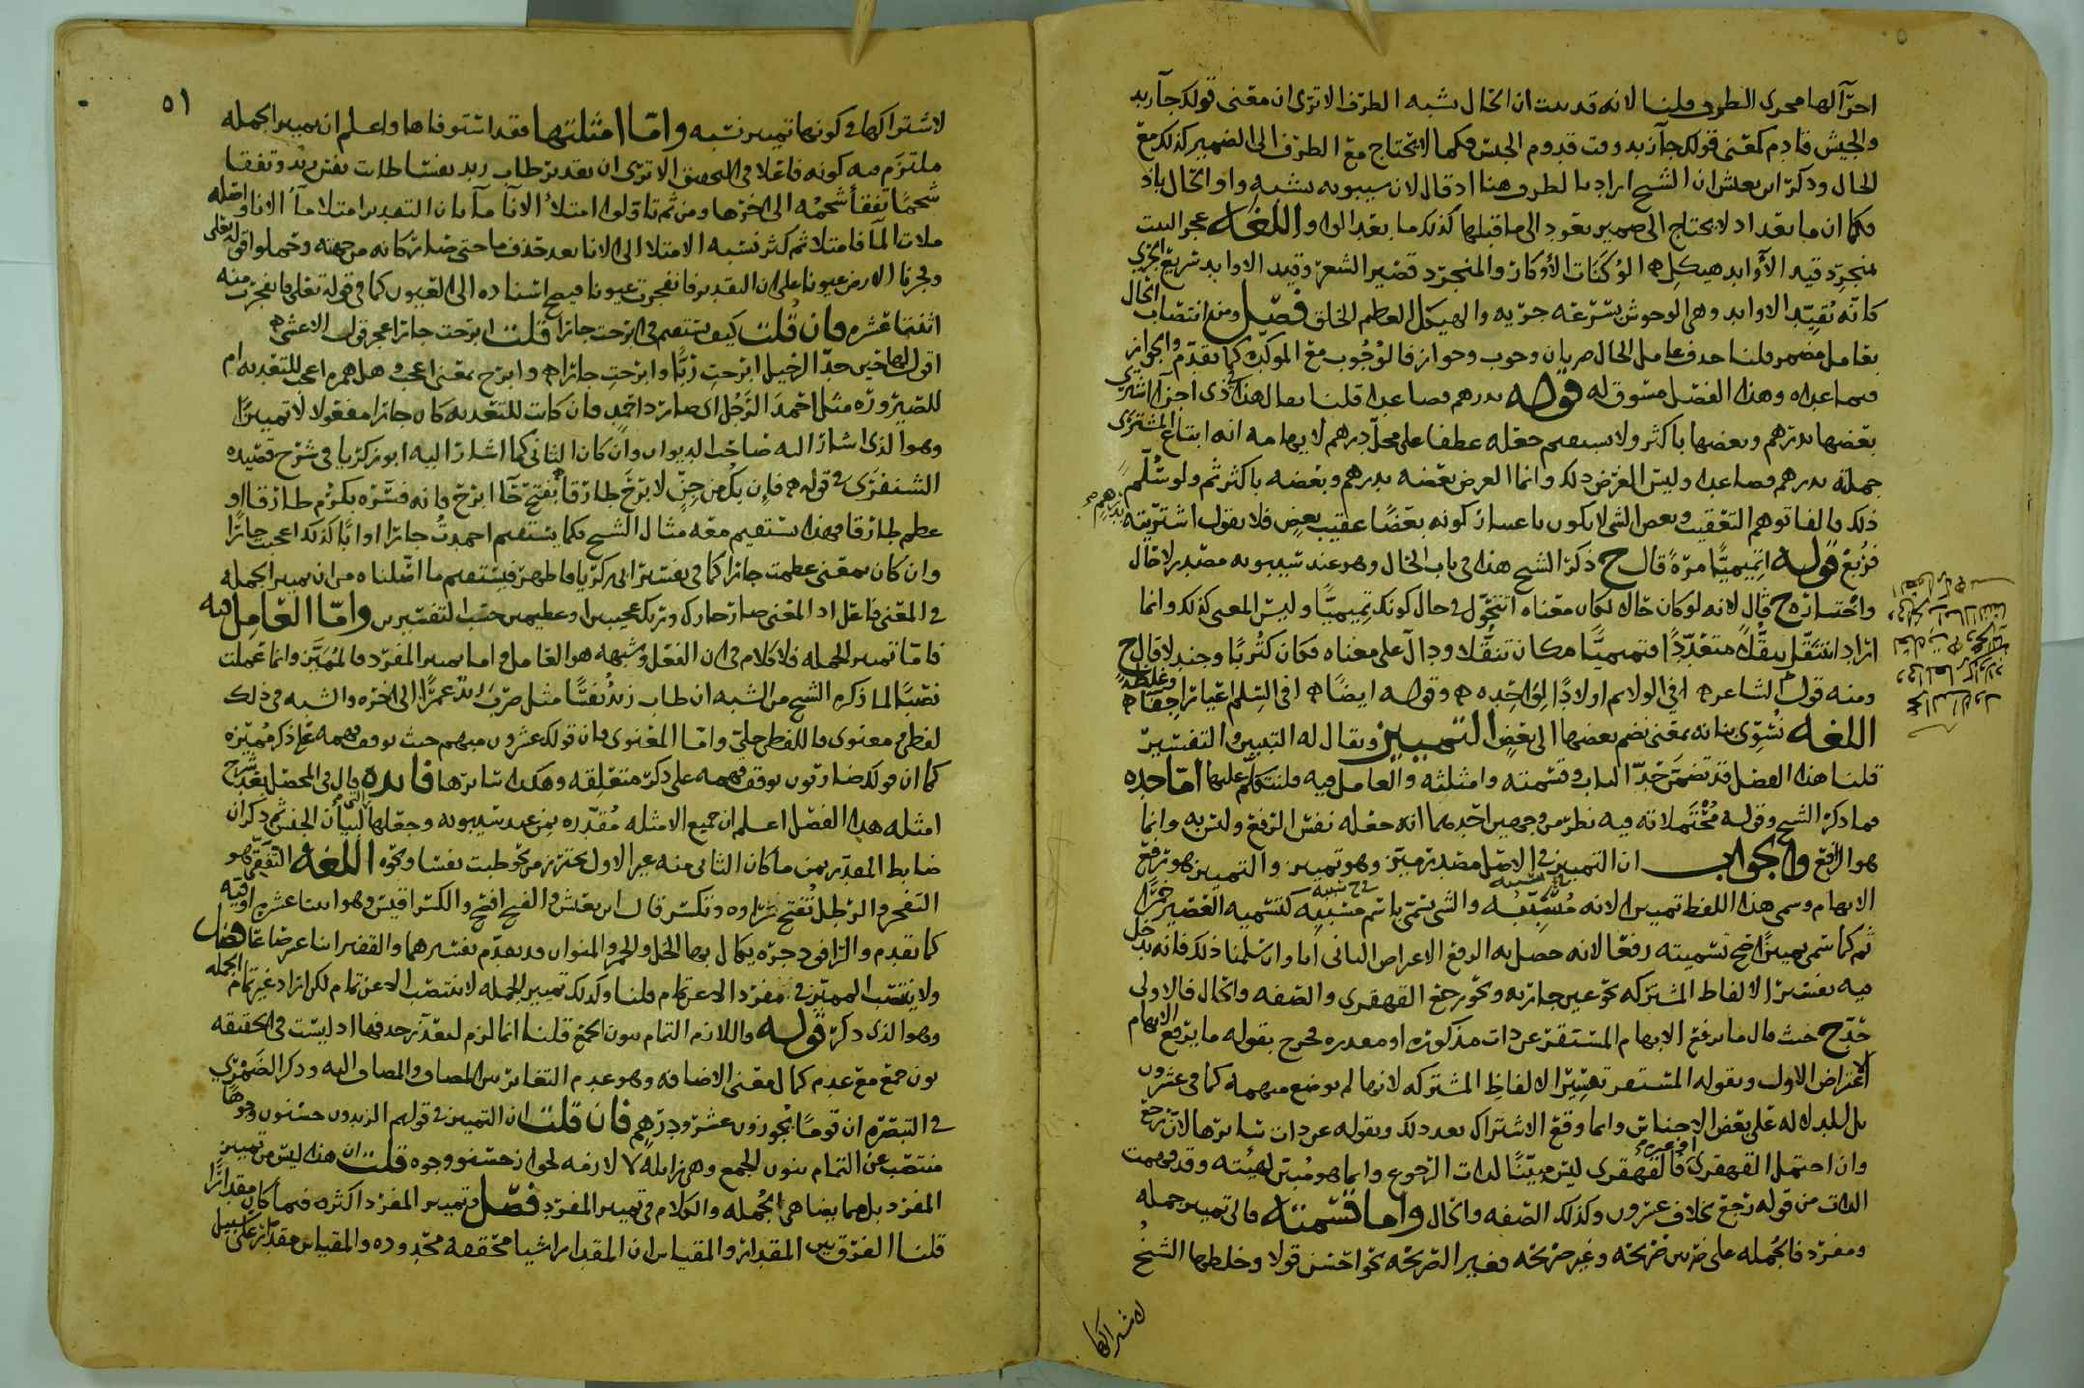 اجرآ لها مجرى الظرف قلنا لانه قد بيت ان الحال يشبه الظرف الا ترى ان معنى قولك جآ زيد
والجيش قادم كمعنى قولك جآ زيد وقت قدوم الجيش فكما لا يحتاج مع الظرف الى الضمير كذلك مع
الحال وذكر ابن يعيش ان الشيخ اراد بالظرف هنا اذ قال لان سيبويه يشبه واو الحال باذ
فكما ان ما بعد اذ لا يحتاج الى ضمير يعود الى ما قبلها كذلك ما بعد الواو اللغه عجز البيت
منجرد قيد الاوابد هيكل ه الوكنات الأوكار والمنجرد قصير الشعر وقيد الاوابد سريع الجري
كانه يقيد الاوابد وهي الوحوش بسرعة جريه والهيكل العظيم الخلق فصل ومن انتصاب الحال
بعامل مضمر قلنا حذف عامل الحال ضربان وجوب وجواز فالوجوب مع الموكده كما تقدم والجواز
فيما عداه وهذا الفصل مسوق له قوله بدرهم فصاعدا قلنا يقال هذا في ذي اجزا اشترى
بعضها بدرهم وبعضها باكثر ولا يستقيم جعله عطفا على محل بدرهم لايهامه انه ابتاع المشترى
جملة بدرهم فصاعدا وليس الغرض ذلك وانما الغرض بعضه بدرهم وبعضه باكثر ثم ولو سلم
ذلك فالفا توهم التعقيب وبعض الشي لا يكون باعتبار كونه بعضا عقيب بعض فلا يقول اشتريته بدرهم
فربع قوله اتميميا مرة قال ح ذكر الشيخ هذا في باب الحال وهو عند سيبويه مصدر لا حال
واختاره ح قال لانه لو كان حالا لكان معناه اتتحول في حال كونك تميميا وليس المعنى كذلك وانما
اراد اتتنقل تنقلا متعددا فتميميا مكان تنقلا ودال على معناه فكان كتربا وجندلا قال ح
ومنه قول الشاعر ه افي الولائم اولادا لواحده ه وقوله ايضا ه افي السلم اعيارا جفا وغلظة ه
اللغه تسوى بنانه بمعنى نضم بعضها الى بعض التمييز ويقال له التبيين والتفسير
قلنا هذا الفصل قد تضمن حد الباب وقسمته وامثلته والعامل فيه فلنتكلم عليها اما حده
فما ذكره الشيخ وقوله محتملاته فيه نظر من وجهين احدهما انه جعله نفس الرفع وليس به وانما
هو الرافع والجواب ان التمييز في الاصل مصدر ميز وهو تمييز والتمييز هو ترفع
الابهام وسمى هذا اللفظ تمييزا لانه مسببه والشي يسمى باسم مسببه كتسميه العصير خمرا
ثم كما سمى تمييزا صح تسميته رفعا لانه حصل به الرفع الاعراض الثاني انا وان سلمنا ذلك فانه يدخل
فيه تفسير الالفاظ المشتركه نحو عين جاريه ونحو رجع القهقرى والصفه والحال فالاولى
حد ح حيث قال ما يرفع الابهام المستقر عن ذات مذكوره او مقدره فخرج بقوله ما يرفع الابهام
الاعتراض الاول وبقوله المستقر تفسير الالفاظ المشتركه لانها لم توضع مبهمه كما في عشرون
بل للدلاله على بعض الاجناس وانما وقع الاشتراك بعد ذلك وبقوله عن ذات سائرها لان رجع
وان احتمل القهقرى او غيره فالقهقرى ليس مبينا لذات الرجوع وانما هو مبين لهيئته وقد فهمت
الذات من قوله رجع بخلاف عشرون وكذلك الصفه والحال واما قسمته فالى تمييز جمله
ومفرد فالجمله على ضربين صريحه وغير صريحه فغير الصريحه نحو احسن قولا وخلطها الشيخ
لاشتراكها
٥١
لاشتراكها في كونها تمييز نسبه واما امثلتها فقد استوفاها واعلم ان تمييز الجمله
ملتزم فيه كونه فاعلا في التحقيق الا ترى ان تقدير طاب زيد نفسا طابت نفس زيد وتفقا
شحما تفقأ شحمه الى اخرها ومن ثم تاولوا امتلأ الانآ مآ بان التقدير امتلا مآ الانا واصله
ملات المآ فامتلا ثم كثر نسبه الامتلا الى الانا بعد حذف ما حتى صار كانه من جهته وحملوا قوله تعالى
وفجرنا الارض عيونا على ان التقدير فانفجرت عيونا فيصح اسناده الى العيون كما في قوله تعالى فانفجرت منه
اثنتا عشره فان قلت كيف يستقيم في ابرحت جارا قلت ابرحت جارا عجز قول الاعشى ه
اقول لها حين جد الرحيل ابرحت ربا وابرحت جارا ه وابرح بمعنى اعجب وهل همزه اعجب للتعديه ام
للصيروره مثل احمد الرجل اى صار ذا حمد فان كانت للتعديه كان جارا مفعولا لا تمييزا
وهو الذى اشار اليه صاحب الديوان وان كان الثاني كما اشار اليه ابو زكريا في شرح قصيده
الشنفرى في قوله ه فان يك من جن لابرح طارقا بفتح حآ ابرح فانه فسره بكرم طارقا او
عظم طارقا فهذا يستقيم معه مثال الشيخ فكما يستقيم احمدت جارا او ابا كذلك اعجبت جارا
وان كان بمعنى عظمت جارا كما في تفسير ابى زكريا فاظهر فيستقيم ما اصلناه من ان تمييز الجمله
في المعنى فاعل اذ المعنى صار جارك وربك عجيبين او عظيمين حسب التفسيرين واما العامل فيه
فاما تمييز الجمله فلا كلام في ان الفعل وشبهه هو العامل واما تمييز المفرد فالمميز وانما عملت
نصبا لما ذكره الشيخ من الشبه ان طاب زيد نفسا مثل ضرب زيد عمرا الى اخره والشبه في ذلك
لفظى ومعنوى فاللفظى جلى واما المعنوى فان قولك عشرون مبهم حيث توقف فهمه على ذكر مميزه
كما ان قولك ضاربون توقف فهمه على ذكر متعلقه وهكذا سائرها فائده قال في المحصل بعد شرح
امثله هذا الفصل اعلم ان جميع الامثله مقدره بمن عند سيبويه وجعلها لبيان الجنس ثم ذكر ان
ضابط المقدر بمن ما كان الثاني منه غير الاول يحترز من نحو طبت نفسا ونحوه اللغه التفقى هو
التفجر والرطل تفتح راوه وتكسر قال ابن يعيش والفتح افصح والكسر اقيس وهو اثنا عشر اوقيه
كما تقدم والراقود جره يكال بها الخل والخمر والمنوان قد تقدم تفسيرهما والقفيز اثنا عشر صاعا فصل
ولا ينتصب المميز في مفرد الا عن تمام قلنا وكذلك تمييز الجمله لا ينتصب الا عن تمام لكن اراد غير تمام الجمله
وهو الذى ذكره قوله واللازم التمام بنون الجمع قلنا انما لزم لتعذر حذفها اذ ليست في الحقيقه
نون جمع مع عدم كمال معنى الاضافه وهو عدم التغاير بين المضاف والمضاف اليه وذكر الصيمري
في التبصره ان قوما يجوزون عشرو درهم فان قلت ان التمييز في قولهم الزيدون حسنون وجوها
منتصب عن التمام بنون الجمع وهي زايله لا لازمه لجواز حسنو وجوه قلت ان هذا ليس من تمييز
المفرد بل مما يضاهي الجمله والكلام في تمييز المفرد فصل وتمييز المفرد اكثره فيما كان مقدارا
قلنا الفرق بين المقدار والمقياس ان المقدار اشيا محققه محدوده والمقياس مقدار على سبيل